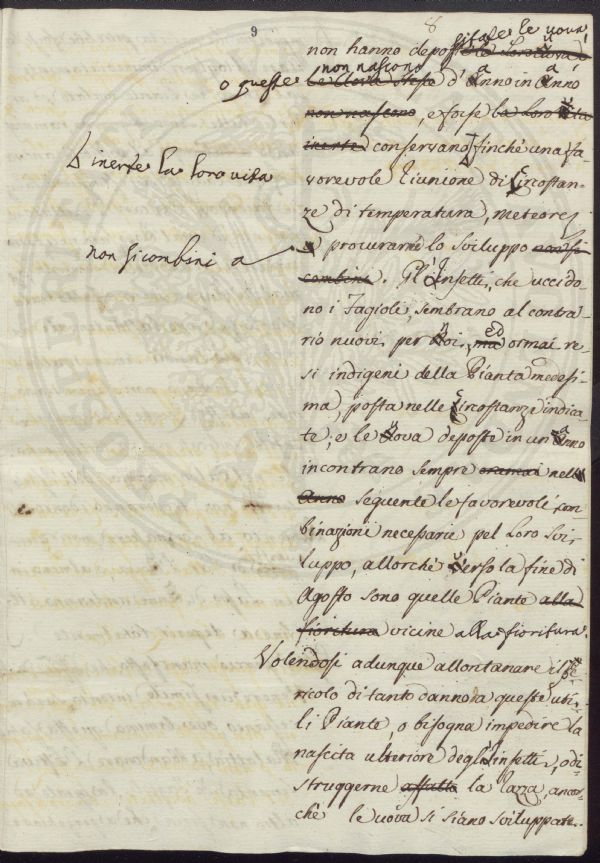 9
8
gitate le uova,
non hanno deposte le loro Uova
non nascono
o queste le Uova stesse d'anno in anno
non nascono, e forse la lor vita
inerte conservano finchè una fa-
inerte la loro vita
vorevole riunione di circostan-
ze di temperatura, meteore
non si combini a
a procurarne lo sviluppo non si
combini. Gl'insetti, che uccido-
no i Fagioli, sembrano al contra-
rio nuovi per noi, ma ed ormai re-
si indigeni della Pianta medesi-
ma, posta nelle circostanze indica-
te; e le uova deposte in un anno
incontrano sempre oramai nell'
Anno seguente le favorevoli com-
binazioni necessarie pel loro svi-
luppo, allorchè verso la fine di
Agosto sono quelle Piante alla
fioritura vicine alla fioritura.
Volendosi adunque allontanare il pe-
ricolo di tanto danno da queste uti-
li Piante, o bisogna impedire la
nascita ulteriore degl'insetti, o di-
struggerne affatto la razza, ancor-
chè le uova si siano sviluppate.